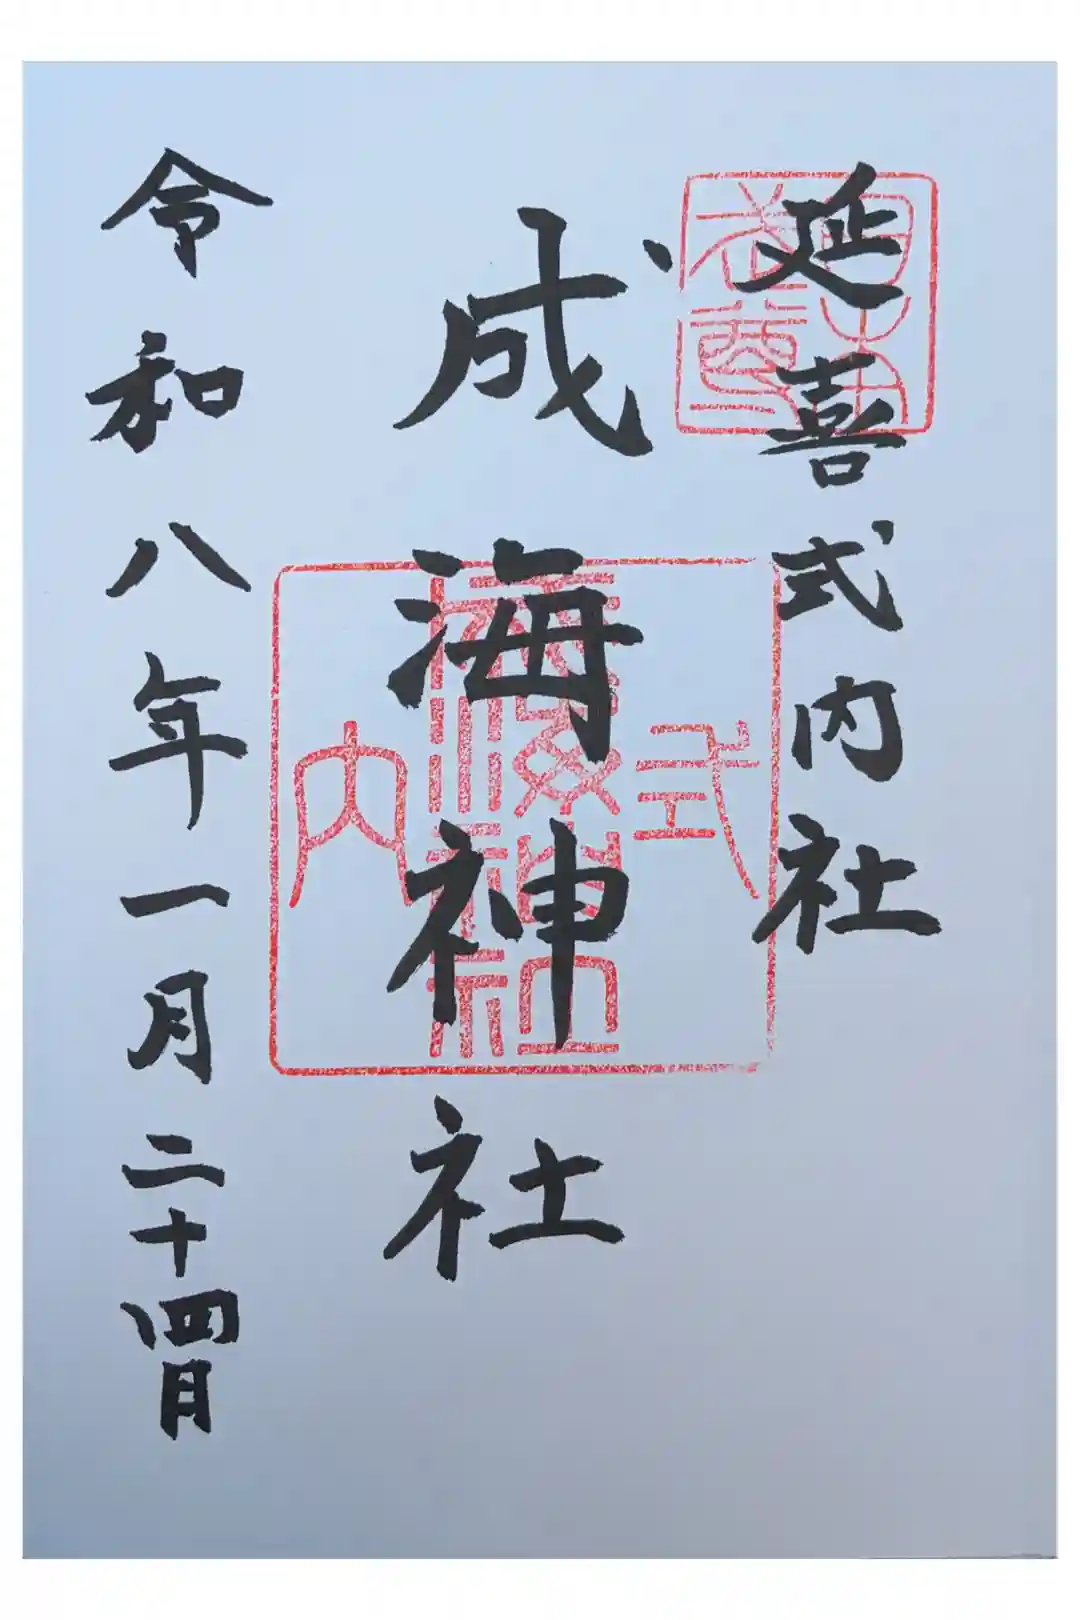 延喜式内社
成海神社
令和八年一月二十四日
式
内